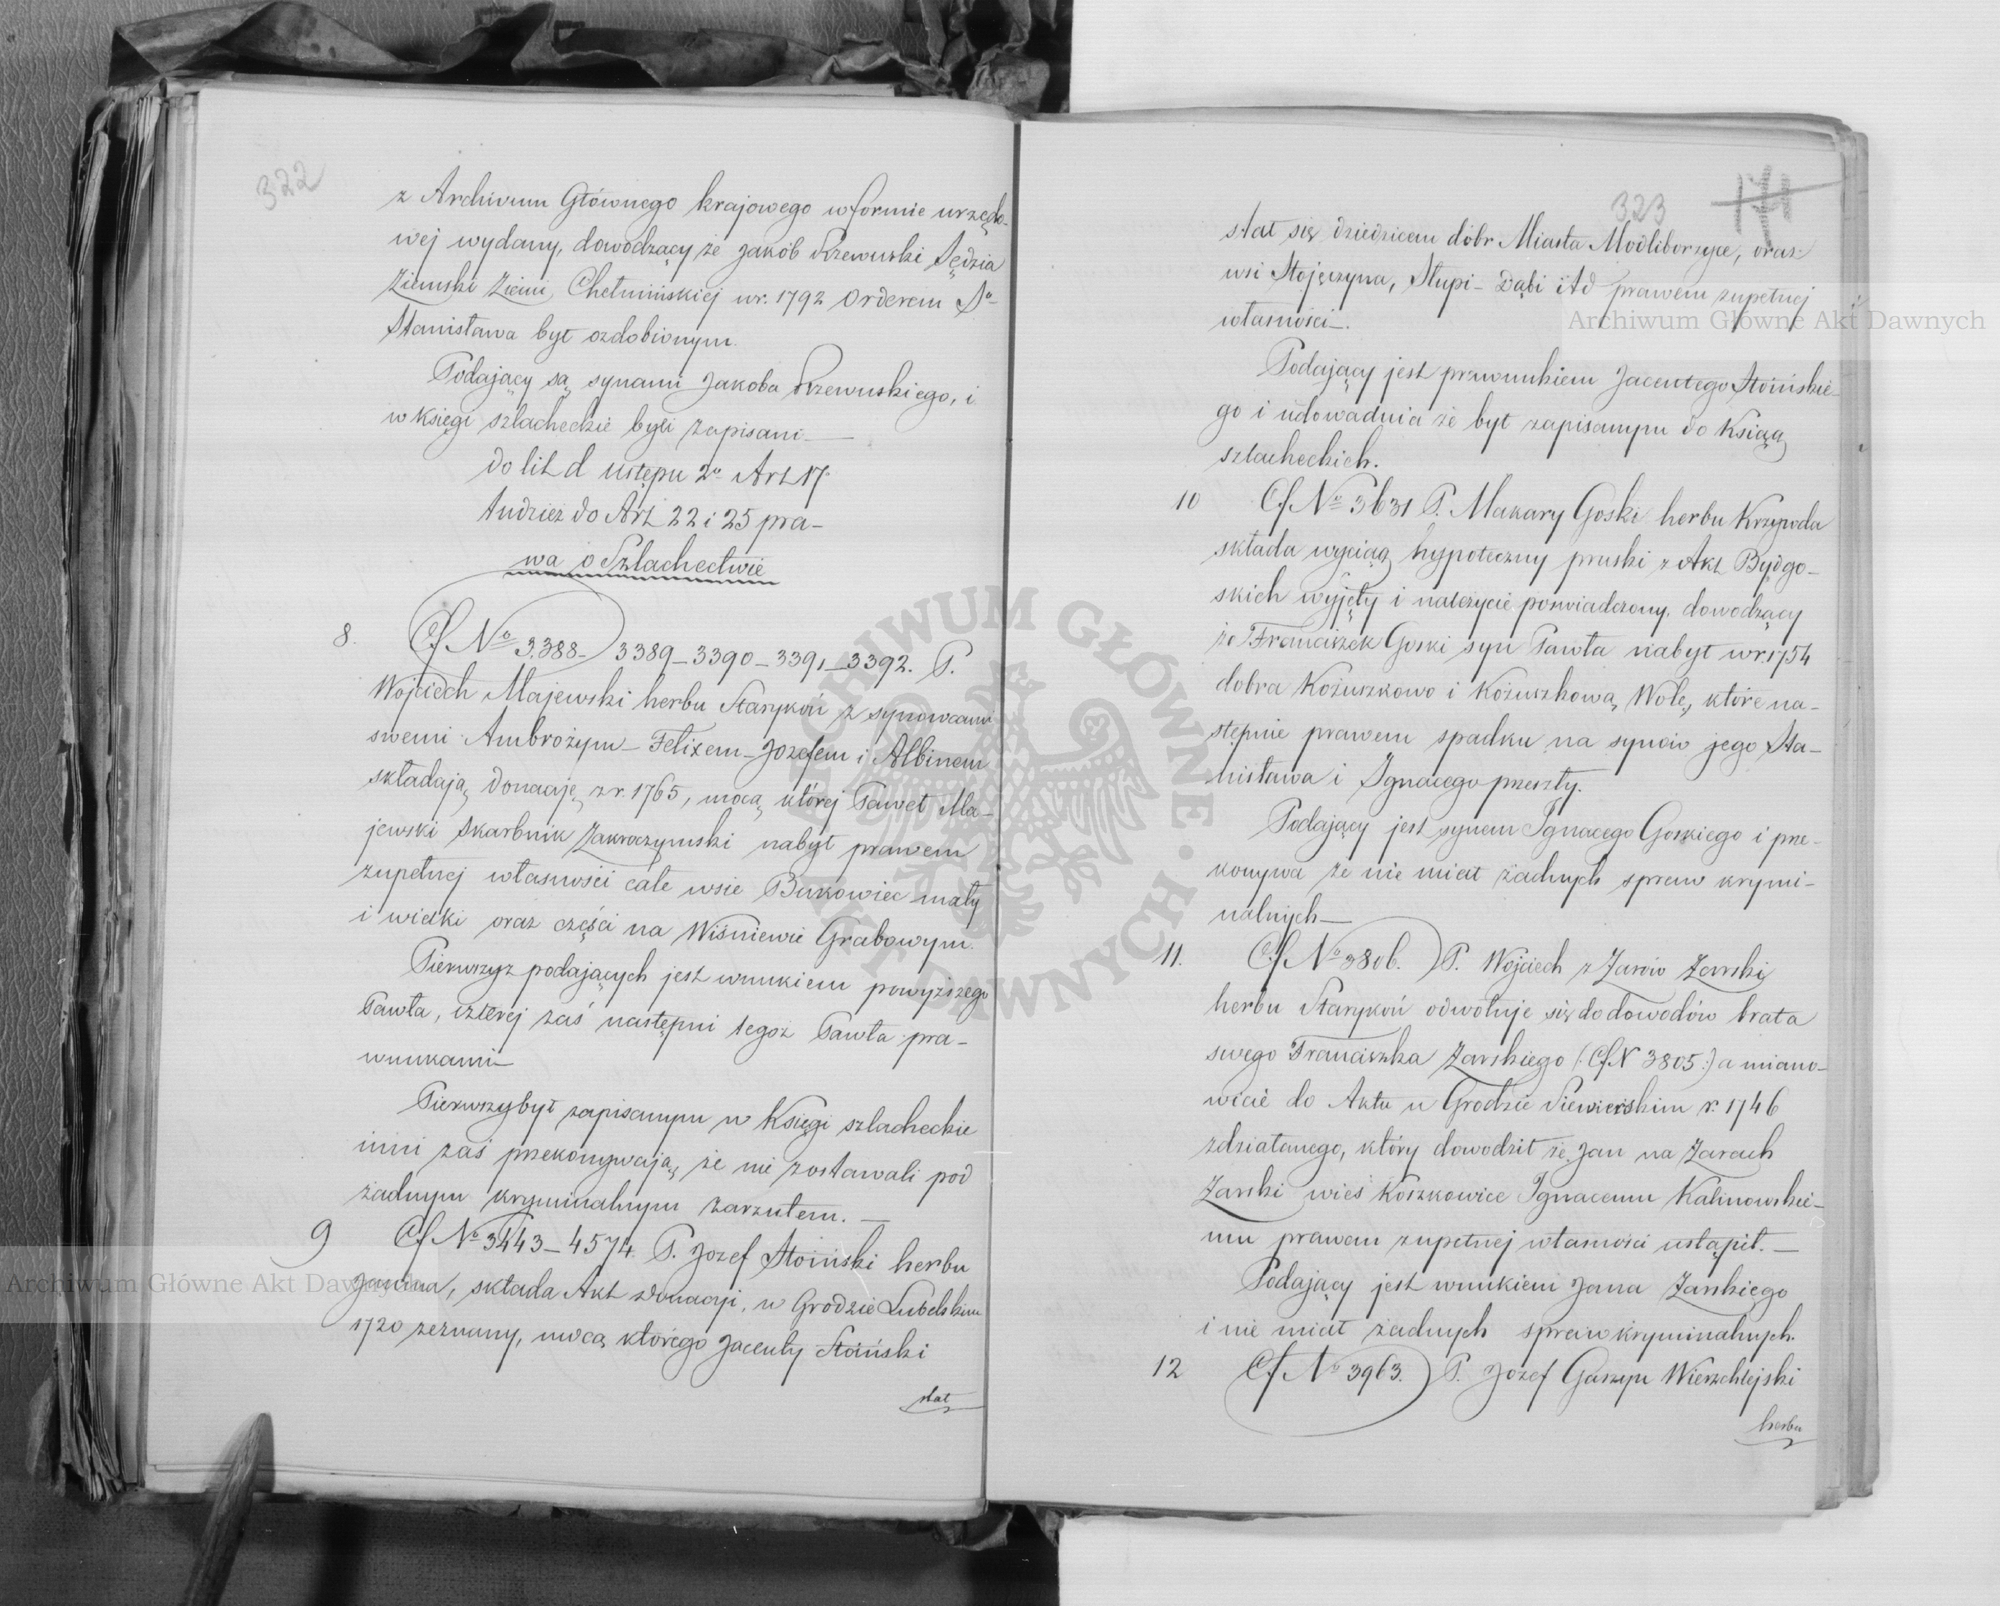 322
z Archivum Głównego krajowego w formie urzędo-
wej wydany, dowodzący że Jakób Rzewuski Sędzia
Ziemski Ziemi Chełmińskiej w r. 1792 Orderem So
Stanisława był ozdobionym.
Podający są synami Jakoba Rzewuskiego, i
w księgi szlacheckie byli zapisani —
do lit d ustępu 2o Art 17
tudzież do Art 22 i 25 pra-
wa o Szlachectwie
8. Cf No 3.388 — 3389 — 3390 — 3391 — 3392. P.
Wojciech Majewski herbu Starykoń z synowcami
swemi Ambrożym — Felixem — Jozefem i Albinem
składają donacją z r. 1765, mocą której Paweł Ma-
jewski Skarbnik Zakroczymski nabył prawem
zupełnej własności całe wsie Bukowiec mały
i wielki oraz części na Wiśniewie Grabowym.
Pierwszy z podających jest wnukiem powyższego
Pawła, czterej zaś następni tegoż Pawła pra-
wnukami —
Pierwszy był zapisanym w Księgi szlacheckie
inni zaś przekonywają że nie zostawali pod
żadnym kryminalnym zarzutem. —
9 Cf No 3443 — 4574. P. Jozef Stoiński herbu
Janina, składa Akt donacyi, w Grodzie Lubelskim
1720 zeznany, mocą którego Jacenty Stoiński
stał
323
stał się dziedzicem dóbr Miasta Modliborzyce, oraz
wsi Stojęczyna, Słupi — Dąbi itd prawem zupełnej
własności —.
Podający jest prawnukiem Jacentego Stoińskie-
go i udowadnia że był zapisanym do Ksiąg
szlacheckich.
10 Cf No 3631 P. Makary Goski herbu Krzywda
składa wyciąg hypoteczny pruski z Akt Bydgo-
skich wyjęty i należycie poświadczony, dowodzący
że Franciszek Goski syn Pawła nabył w r. 1754
dobra Kożuszkowo i Kożuszkową Wolę, które na-
stępnie prawem spadku na synów jego Sta-
nisława i Ignacego przeszły.
Podający jest synem Ignacego Goskiego i prze-
konywa że nie miał żadnych spraw krymi-
nalnych —
11. Cf No 3806. P. Wojciech z Żarów Żarski
herbu Starykoń odwołuje się do dowodów brata
swego Franciszka Żarskiego (: Cf N 3805 :) a miano-
wicie do Aktu w Grodzie Siewierskim r. 1746
zdziałanego, który dowodził że Jan na Żarach
Żarski wieś Koszkowice Ignacemu Kalinowskie-
mu prawem zupełnej własności ustąpił. —
Podający jest wnukiem Jana Żarskiego
i nie miał żadnych spraw kryminalnych.
12 Cf No 3963. P. Jozef Gaszyn Wierzchlejski
herbu
Archiwum Główne Akt Dawnych
Archiwum Główne Akt Dawnych
ARCHIWUM GŁÓWNE · AKT DAWNYCH ·